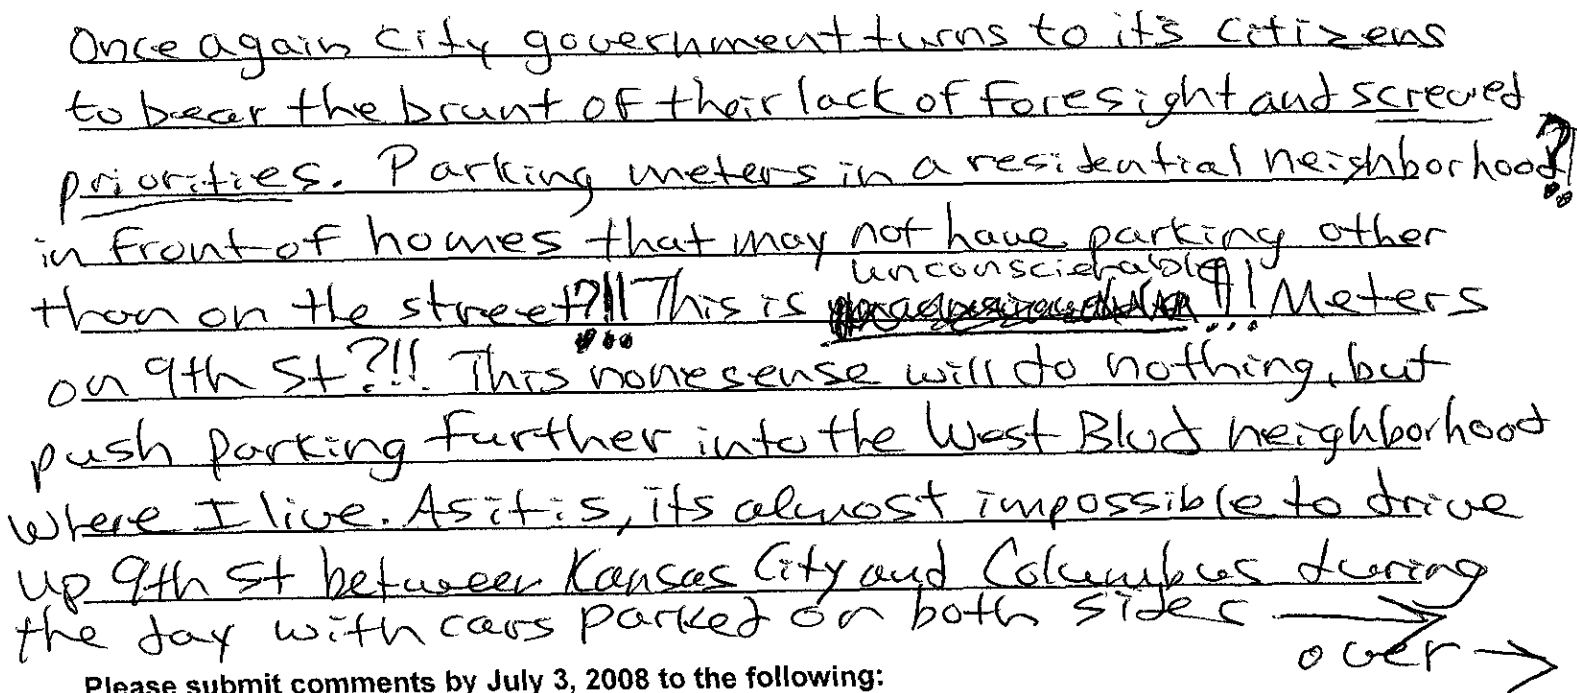 Once again City government turns to it's citizens
to bear the brunt of their lack of foresight and screwed
priorities. Parking meters in a residential neighborhood?!
in front of homes that may not have parking other
unconscienable
than on the street?!!! This is !!! Meters
on 9th St?!!! This nonesense will do nothing, but
push parking further into the West Blvd neighborhood
where I live. As it is, its almost impossible to drive
up 9th St between Kansas City and Columbus during
the day with cars parked on both sides →
over →
Please submit comments by July 3, 2008 to the following: